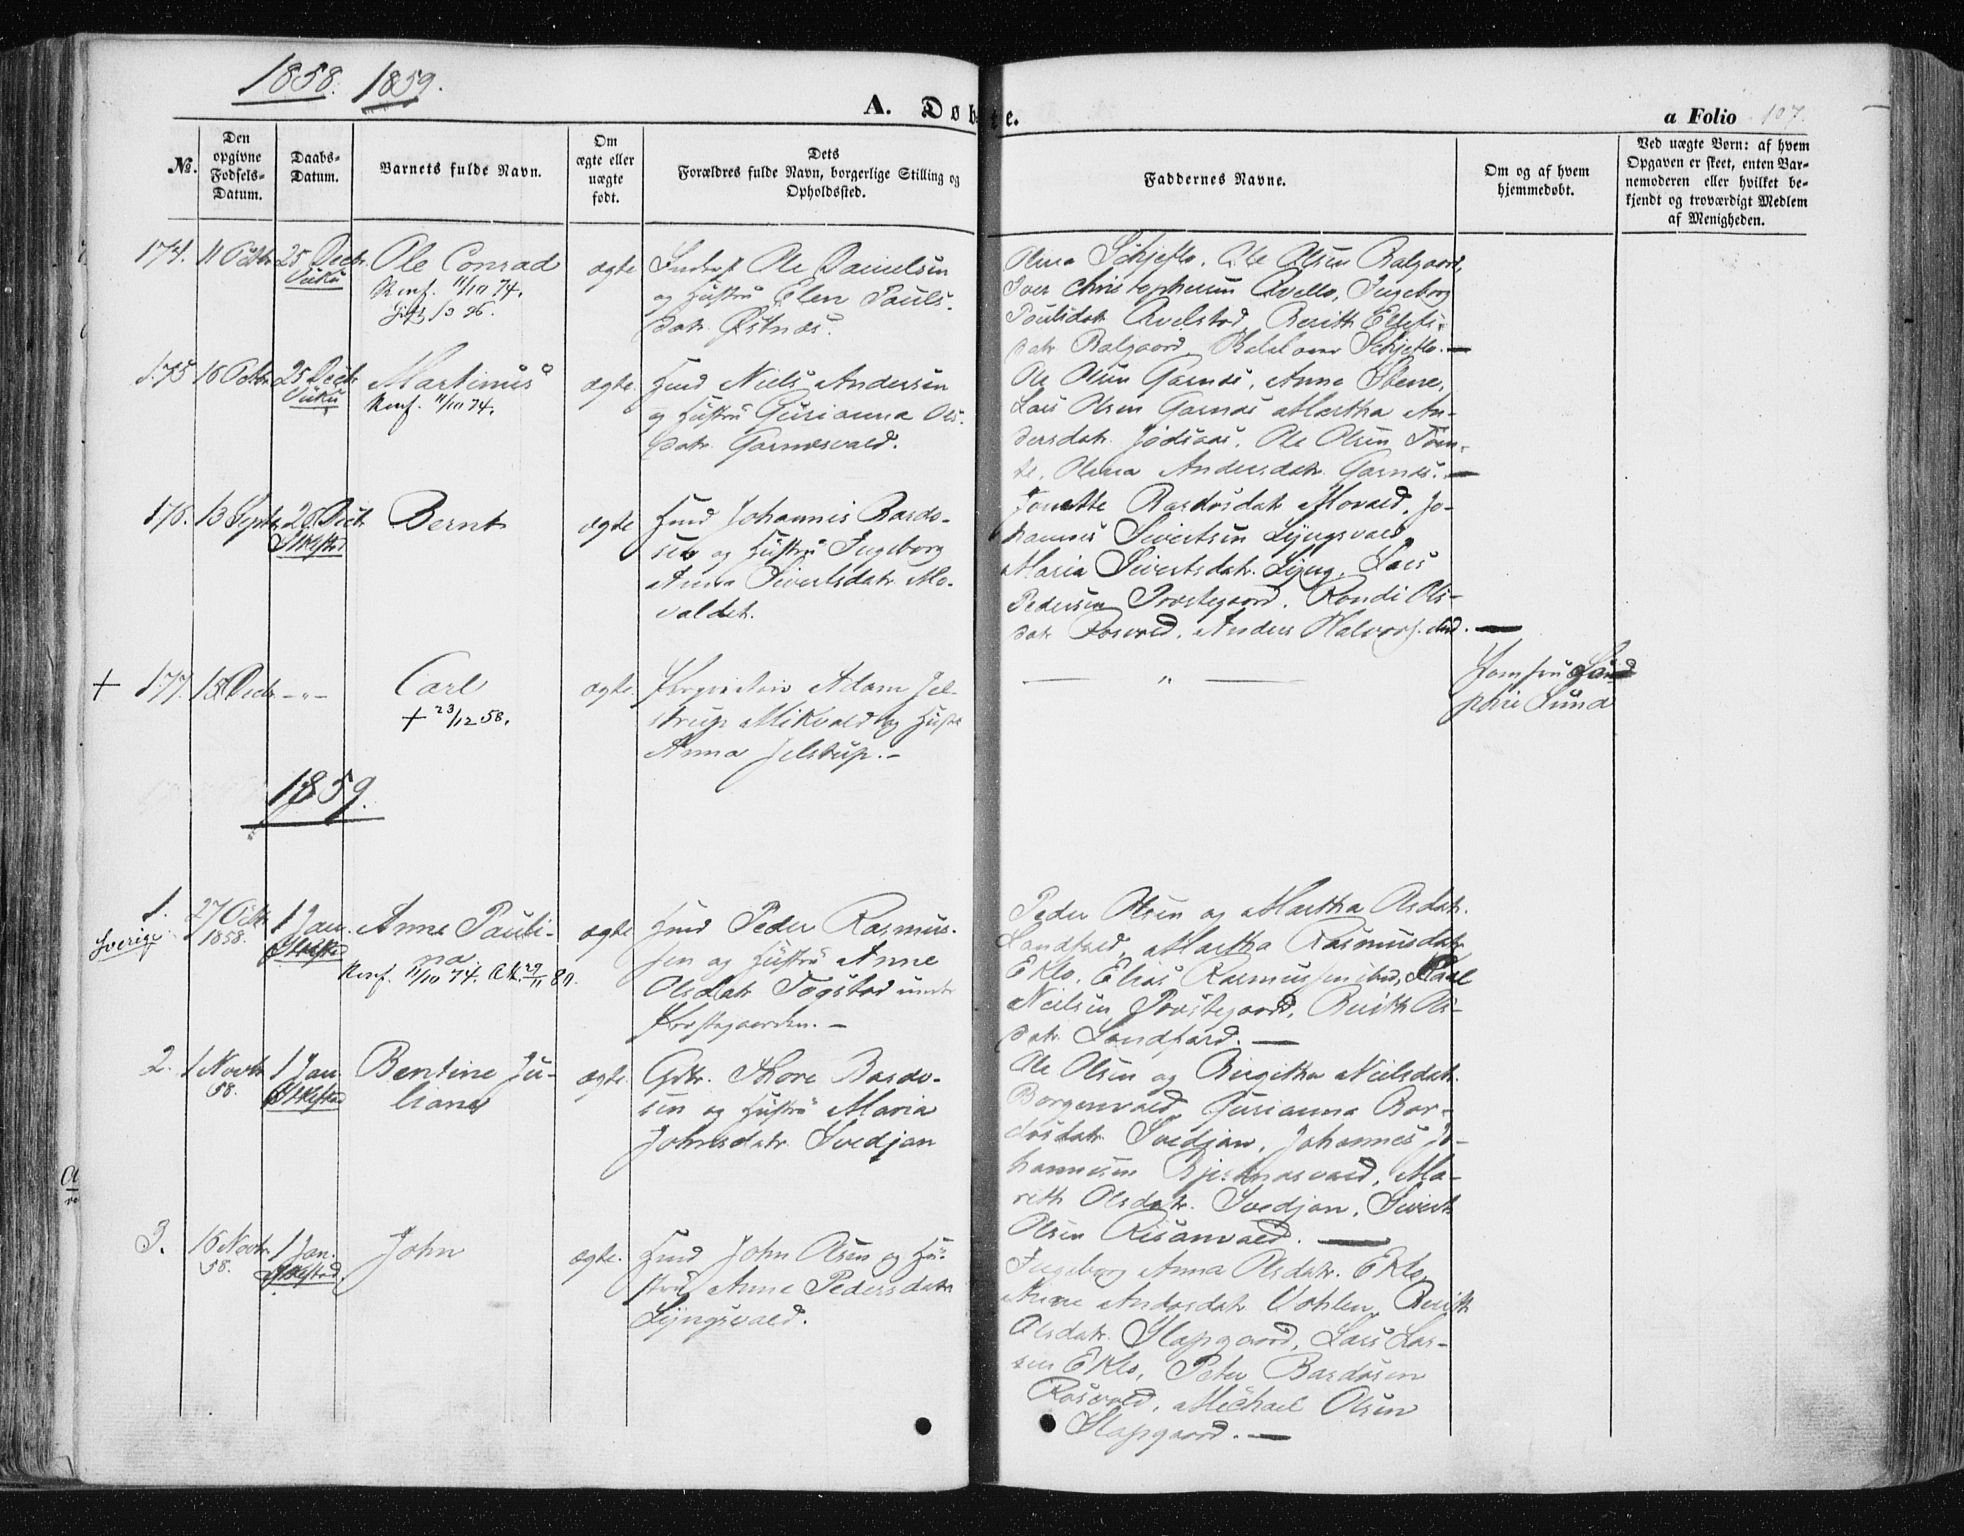 1858. 1859.
A. Døbte.
a Folio 107.
№.
Den opgivne Fødsels-Datum.
Daabs-Datum.
Barnets fulde Navn.
Om ægte eller uægte født.
Dets Forældres fulde Navn, borgerlige Stilling og Opholdssted.
Faddernes Navne.
Om og af hvem hjemmedøbt.
Ved uægte Børn: af hvem Opgaven er skeet, enten Barnemoderen eller hvilket bekjendt og troværdigt Medlem af Menigheden.
174. 11 Octbr 25 Decbr Vuku
Ole Conrad
Konf. 11/10 74.
ægte
Ole Danielsen
og Hustru Elen Pauls-
datr. Østnæs.
Olina Schjeflo. Ole Olsen Balgaard,
Iver Christophersen Qvello, Ingeborg
Poulsdatr Qvelstad, Berith Ellefs-
datr Balgaard, Schjeflo. —
175 16 Octbr 25 Decbr Vuku
Martinus
Konf. 11/10 74.
ægte
Huusd Niels Andersen
og Hustru Gurianna Ols-
datr. Garnesvald.
Ole Olsen Garnes, Anne Stene,
Lars Olsen Garnæs Martha An-
dersdatr. Jødsaas. Ole Olsen Tom-
te, Olina Andersdatr. Garnæs. —
176. 13 Septr 26 Decbr Stiklestad
Bernt
ægte
Huusd Johannis Bardo-
sen og Hustru Ingeborg
Anna Sivertsdatr Mo-
valdet.
Jonette Bardosdatr Movald. Jo-
hannes Sivertsen Lyngsvald,
Maria Sivertsdatr. Lyng. Lars
Pedersen Prostegaard. Randi Ols-
datr Rosvold. Anders Halvors. ibid. —
+ 177. 18 Decbr —"—
Carl
+ 23/12 58.
ægte.
Proprietair Adam Jel-
strup Mikvold og Hustru
Anna Jelstrup. —
— " —
Jomfru
Lund
1859.
1. 27 Octbr 1858. 1 Jan. Stiklestad
Sverige.
Anne Pauli-
na
Konf. 11/10 74. Att. 29/11 80.
ægte
Huusd Peder Rasmus-
sen og Hustru Anne
Olsdatr Togstad under
Prestegaarden. —
Peder Olsen og Martha Olsdatr.
Landfald, Martha Rasmusdatr
Eklo, Elias Rasmussen ibid, Paul
Nielsen Prostegaard, Berith Ols-
datr Landfard. —
2. 1 Novbr 58. 1 Jan. Stiklestad
Bentine Ju-
liana
ægte.
Gdbr. Thore Bardo-
sen og Hustru Maria
Johnsdatr Svedjan
Ole Olsen og Birgitha Nielsdatr.
Borgenvald, Gurianna Bar-
dosdatr Svedjan, Johannes Jo-
hannesen Bjertnæsvald, Ma-
rith Olsdatr. Svedjan, Sivert
Olsen Risanvald. —
3. 16 Novbr 58. 1 Jan. Stiklestad.
John
ægte.
Huusd John Olsen og Hu-
stru Anne Pedersdatr
Lyngsvald.
Ingeborg Anna Olsdatr. Eklo,
Anne Andorsdatr Vohlen, Berith
Olsdatr. Slapgaard, Lars Lar-
sen Eklo, Peter Bardosen
Rosvold, Michael Olsen
Slapgaard. —